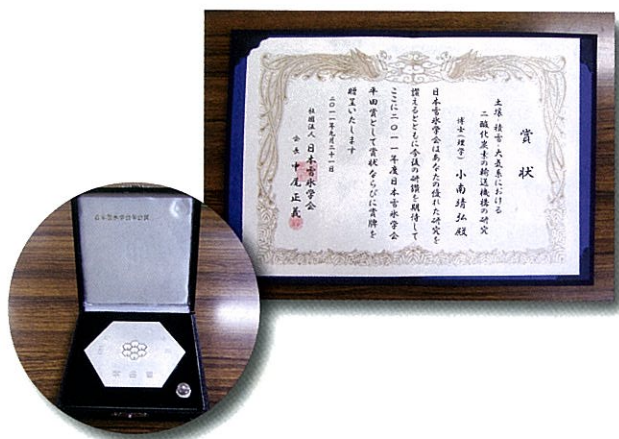 賞状
土壌・積雪・大気系における
二酸化炭素の輸送機構の研究
博士(理学) 小南靖弘殿
日本雪氷学会はあなたの優れた研究を
讃えるとともに今後の研鑽を期待して
ここに二〇一一年度日本雪氷学会
平田賞として賞状ならびに賞牌を
贈呈いたします
二〇一一年九月二十一日
社団法人 日本雪氷学会
会長 中尾正義